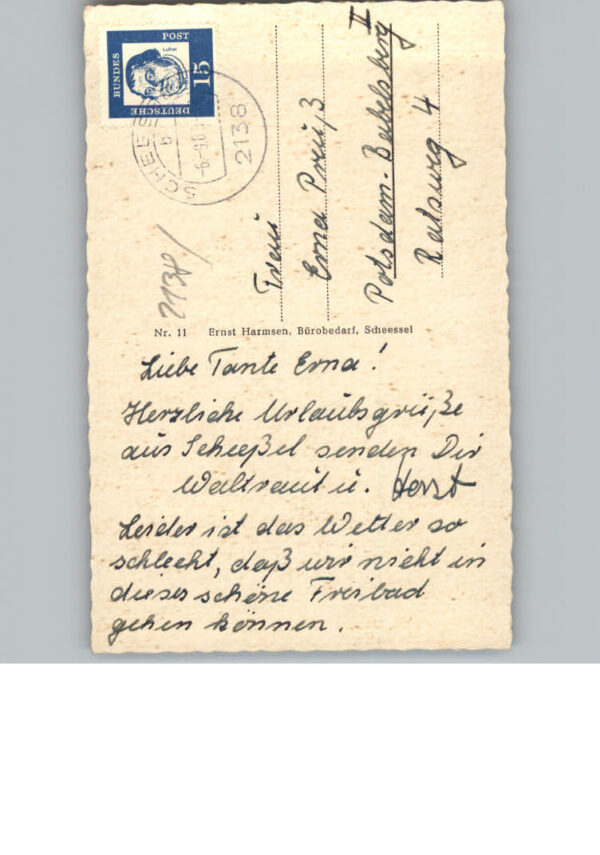 Liebe Tante Erna!
Herzliche Urlaubsgrüße
aus Scheeßel senden Dir
Waltraut u. Horst
Leider ist das Wetter so
schlecht, daß wir nicht in
dieses schöne Freibad
gehen können.
Nr. 11 Ernst Harmsen, Bürobedarf, Scheessel
Frau
Erna Preuß
Potsdam-Babelsberg II
Ratsweg 4
2138/
DEUTSCHE
BUNDES
POST
Luther
15
2138